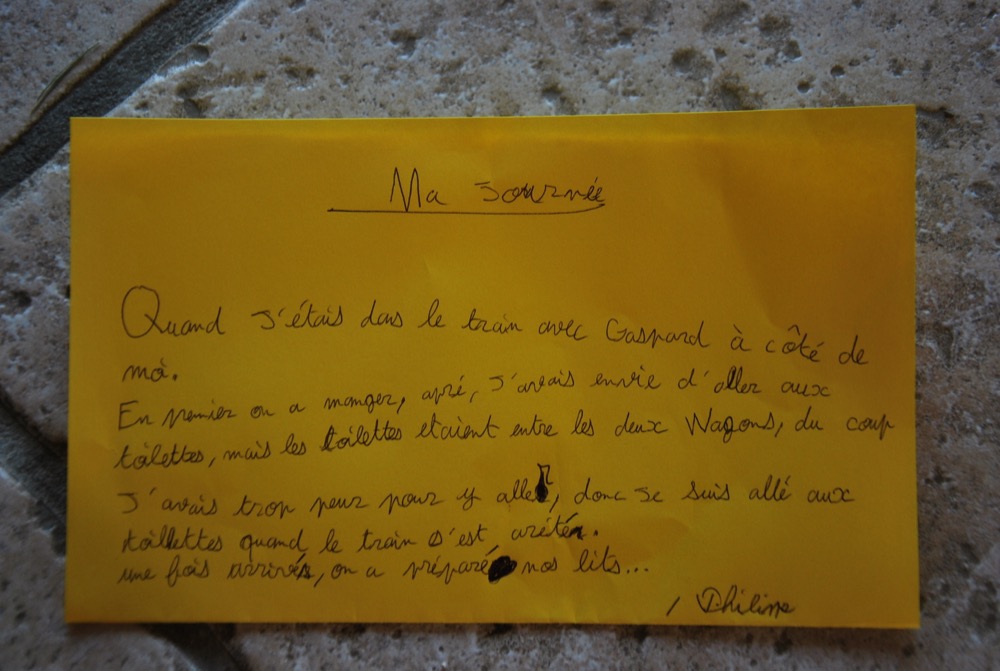 Ma Journée
Quand J'étais dans le train avec Gaspard à côté de
moi.
En premier on a manger, apré, J'avais envie d'aller aux
toilettes, mais les toilettes etaient entre les deux Wagons, du coup
J'avais trop peur pour y aller, donc Je suis allé aux
toillettes quand le train s'est arétér.
une fois arrivés, on a préparé nos lits...
/ Philipp